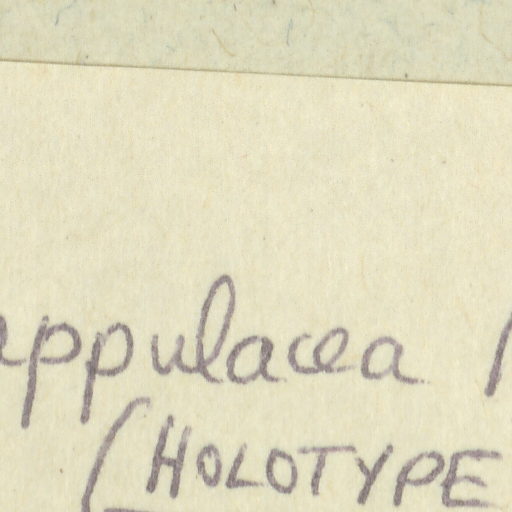 appulacea
(HOLOTYPE